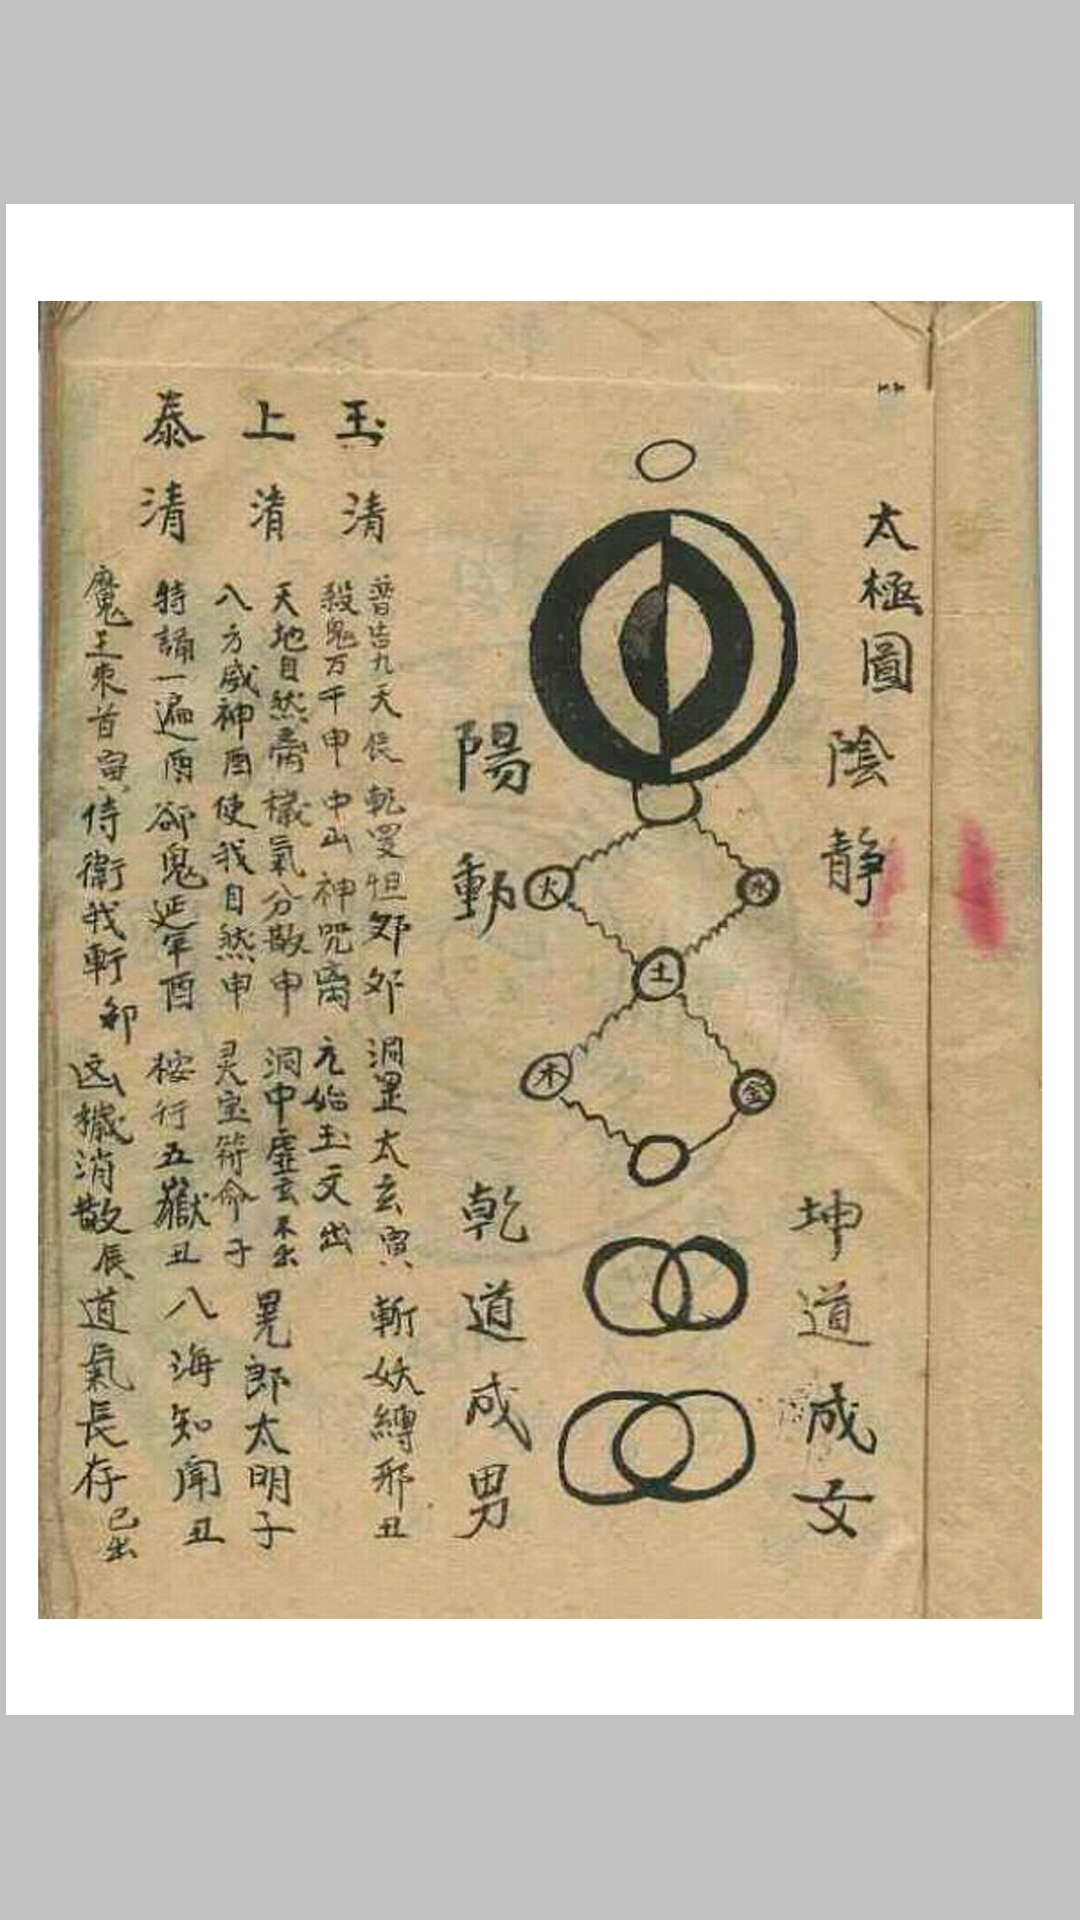 太極圖
陰靜
陽動
火
水
土
木
金
坤道成女
乾道成男
玉清
上清
泰清
普告九天 乾罡怛 洞罡太玄寅 斬妖縛邪丑
殺鬼万千申 中山神咒离 元始玉文出
天地自然离 穢氣分散申 洞中虛玄 晃郎太明子
八方威神酉 使我自然申 灵宝符命子
特誦一遍酉 卻鬼延年酉 桉行五嶽丑 八海知聞丑
魔王束首寅 侍衛我軒卯 凶穢消散辰 道氣長存